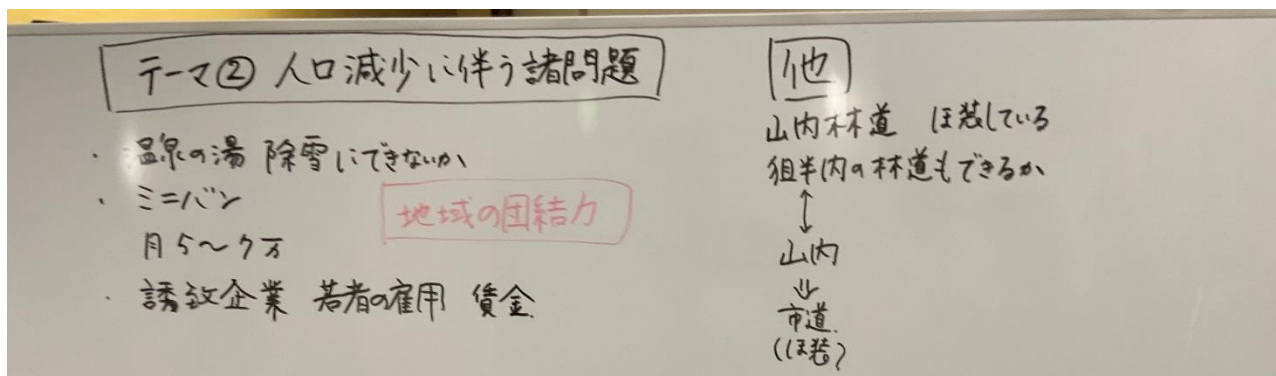 テーマ② 人口減少に伴う諸問題
・温泉の湯 除雪にできないか
・ミニバン
月5〜7万
地域の団結力
・誘致企業 若者の雇用 賃金
他
山内林道 ほ装している
狙半内の林道もできるか
↕
山内
⇓
市道
(ほ装)